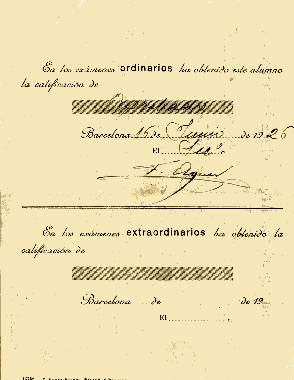 En los exámenes ordinarios ha obtenido este alumno
la calificación de
Barcelona 16 de Junio de 1926
El Srio.
F. Aguer
En los exámenes extraordinarios ha obtenido la
calificación de
Barcelona de de 19
El